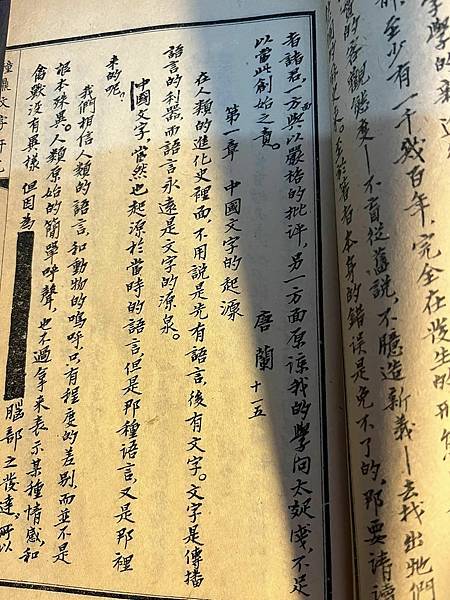 字學的
都至少有一千幾百年,完全在後生的形態
的客觀態度—不盲從舊說,不臆造新義—去找出牠們
來。至於著者本身的錯誤是免不了的,那要請讀
者諸君,一方面與以嚴格的批評,另一方面原諒我的學問太疑陋,不足
以當此創始之責。
唐蘭 十一五
第一章 中國文字的起源
在人類的進化史裡面,不用說是先有語言,後有文字。文字是傳播
語言的利器,而語言永遠是文字的源泉。
中國文字,當然也起源於當時的語言,但是那種語言,又是那裡
來的呢。
我們相信人類的語言,和動物的鳴呼,只有程度的差別,而並不是
根本殊異。人類原始的簡單呼聲,也不過拿來表示某種情感,和
禽獸沒有異樣 但因為 腦部之後達所以
文字